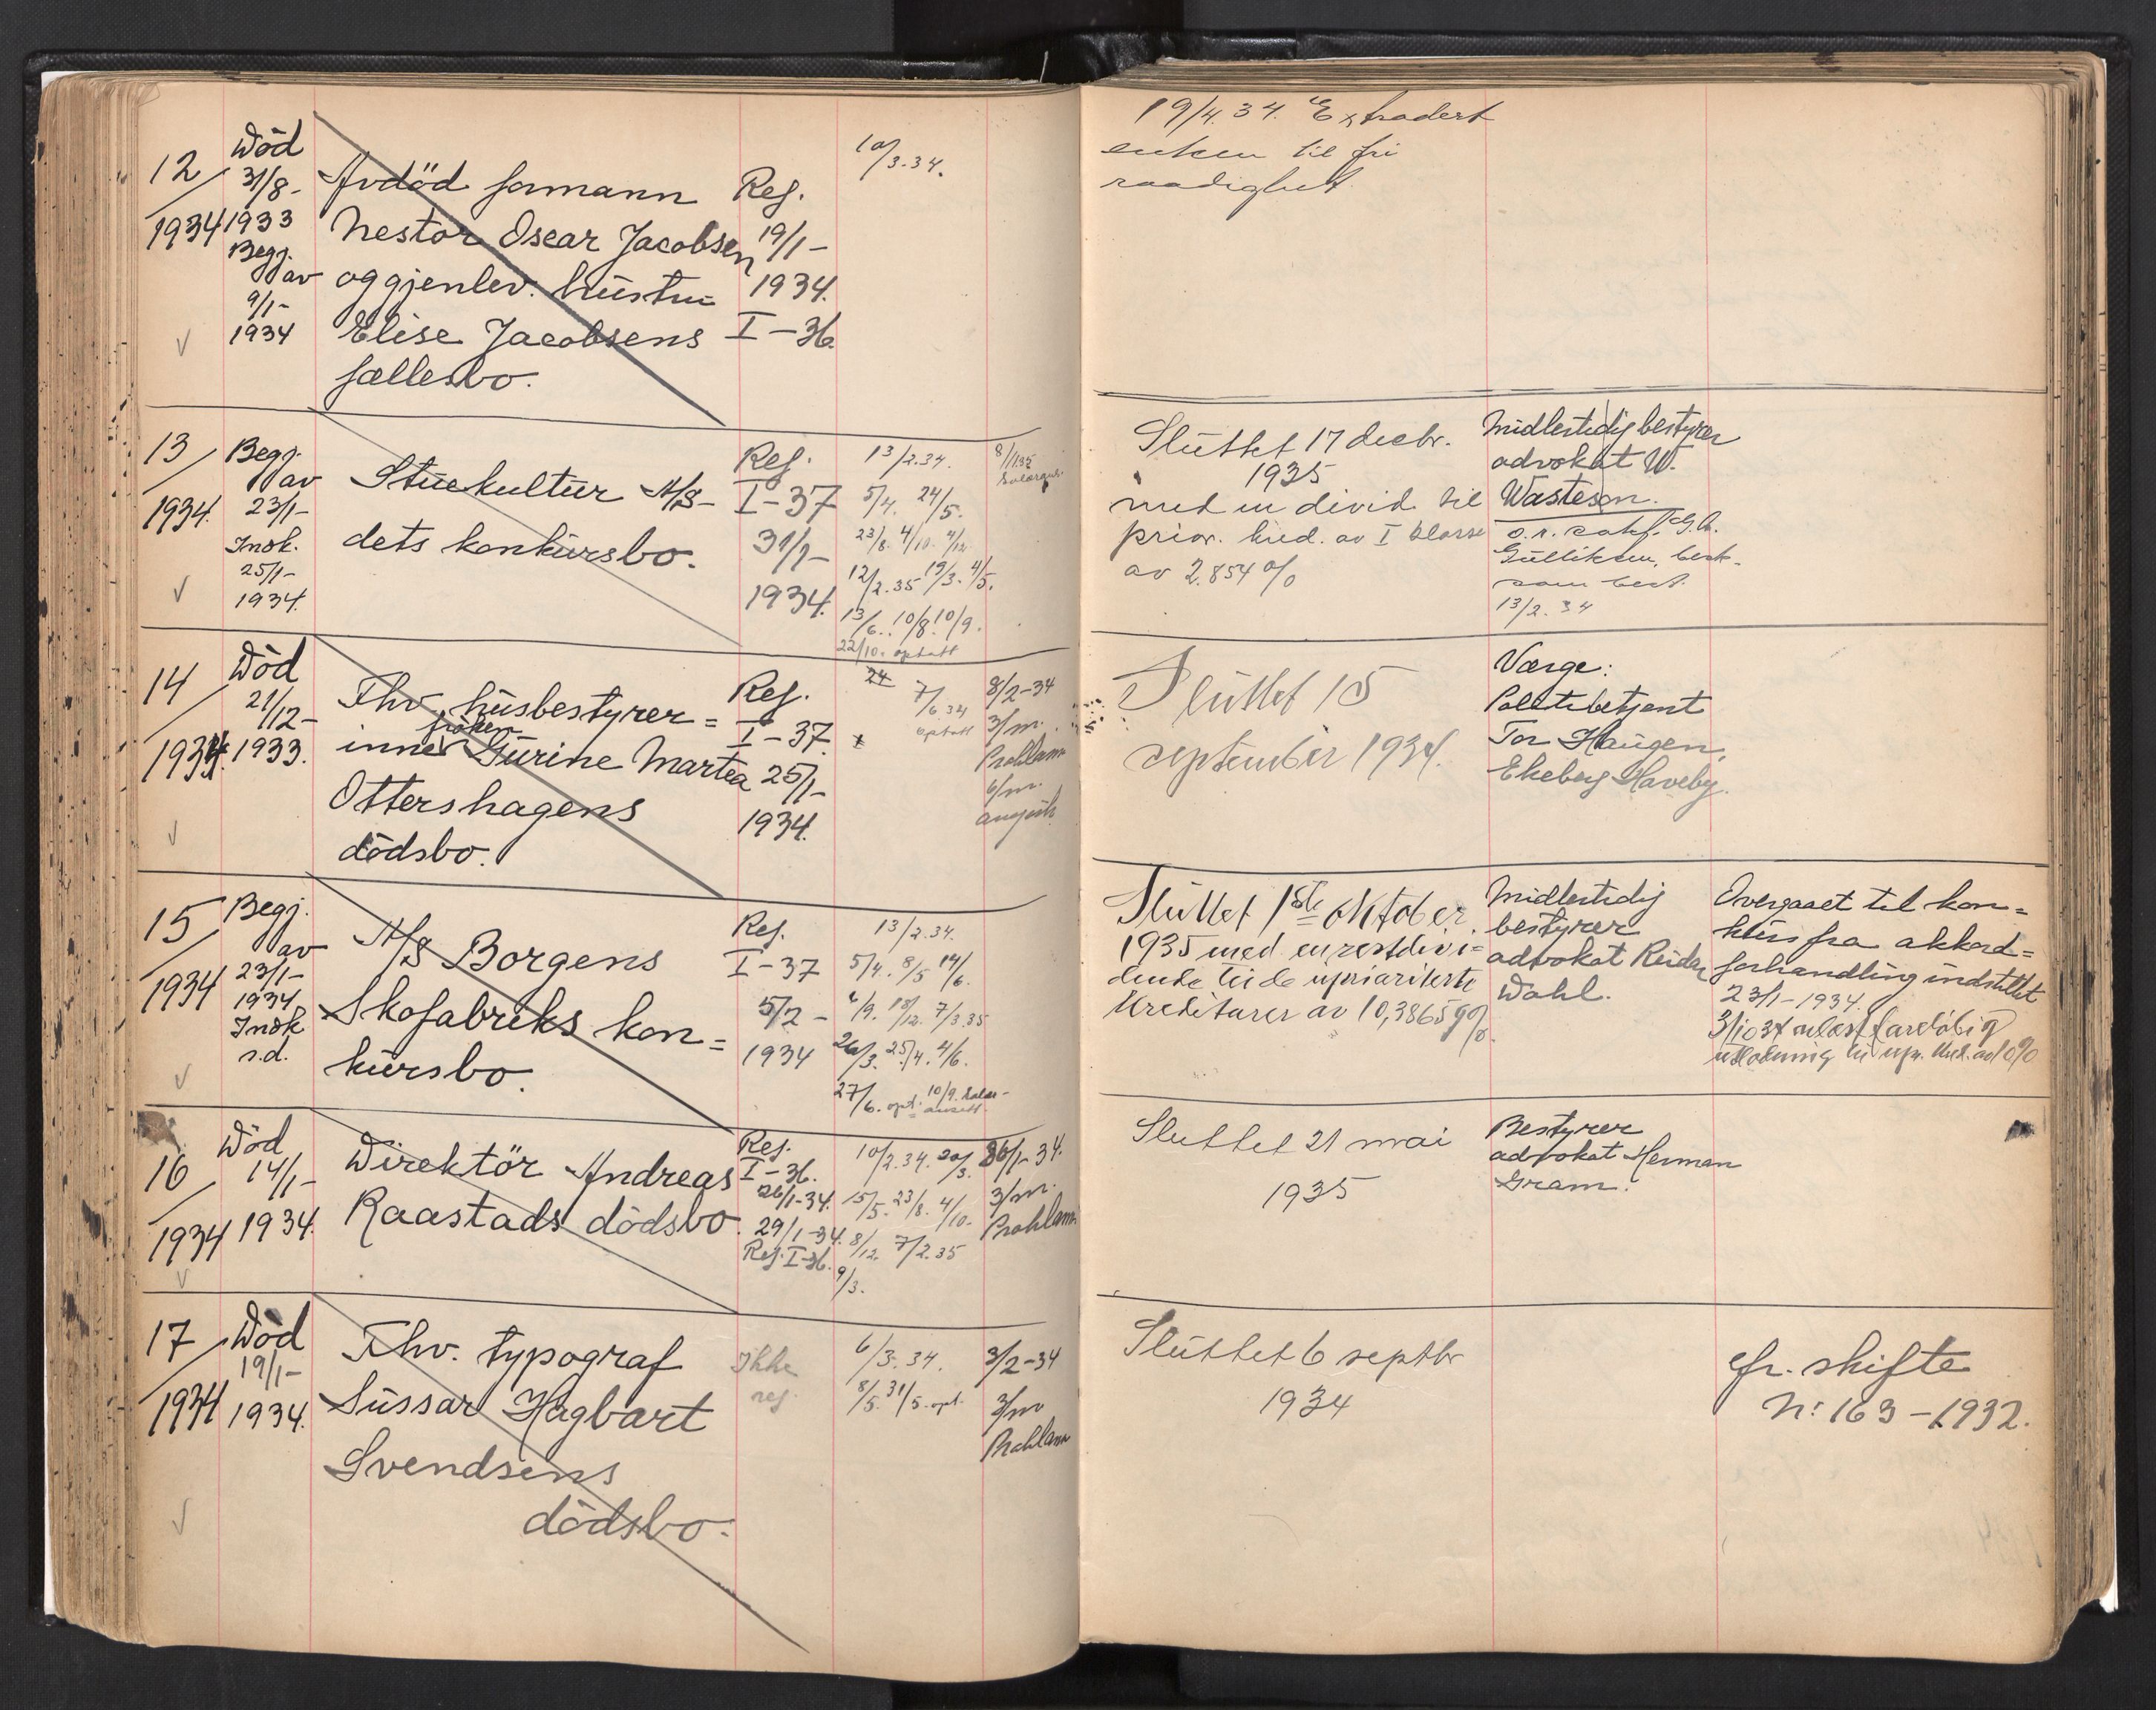 12 / 1934
Död
31/8-
1933
Begj.
av
9/1-
1934
Avdöd formann
Nestor Oscar Jacobsen
og gjenlev. hustru
Elise Jacobsens
fællesbo.
Reg.
19/1-
1934.
I-36.
10/3.34.
19/4.34. Extradert
enken til fri
raadighet.
13 / 1934.
Begj.
av
23/1-
Insk.
25/1-
1934.
Stuekultur A/S-
dets konkursbo.
Reg.
I-37
31/1-
1934.
13/2.34.
5/4. 24/5.
23/8. 4/10. 4/12.
12/2.35 19/3. 4/5.
13/6. 10/8. 10/9.
22/10. optatt
Sluttet 17 decbr.
1935
med en divid til
prior. kred. av I klasse
av 2.854 %
Midlertidig bestyrer
advokat W.
Wastesen.
o.r. sakf. G.A.
Gulliksen, besk.
som best.
13/2.34
14 / 1934.
Död
21/12-
1933.
Fhv. husbestyrer=
frøken
inne Gurine Martea
Ottershagens
dödsbo.
Reg.
I-37.
25/1-
1934.
7/6 34
optatt
8/2-34
3/m.
Proklama
6/m.
Sluttet 15
september 1934.
Værge:
Politibetjent
Tor Haugen,
Ekeberg Haveby.
15 / 1934
Begj.
av
23/1-
1934
Insk
s.d.
A/S Borgens
Skofabriks kon=
kursbo.
Reg.
I-37
5/2-
1934
13/2.34.
5/4. 8/5 14/6.
4/9. 18/12. 7/3.35
26/3. 25/4. 4/6.
27/6. opt. 10/9. Salær-
ansett.
Sluttet 1ste oktober.
1935 med en restdivi=
dende til de uprioriterte
kreditorer av 10,38659%.
Midlertidig
bestyrer
advokat Reidar
Wahl.
Overgaaet til kon=
kurs fra akkord=
forhandling indstillet
23/1-1934.
utlodning til upr. kred. av 10%
16 / 1934
Död
14/1-
1934.
Direktör Andreas
Raastads dödsbo.
Reg.
I-36.
26/1-34.
29/1-34.
Reg. I-36.
10/2.34. 20/3.
15/5. 23/8. 4/10.
8/12. 7/2.35
9/3.
26/1-34.
3/m.
Proklama
Sluttet 21 mai
1935
Bestyrer
advokat Herman
Gram.
17 / 1934
Död
19/1-
1934.
Fhv. typograf
Sussar Hagbart
Svendsens
dödsbo.
Ikke
reg.
6/3.34.
8/5. 31/5. opt.
3/2-34
3/m
Proklama
Sluttet 6 septbr
1934
cfr. skifte
Nr. 163-1932.